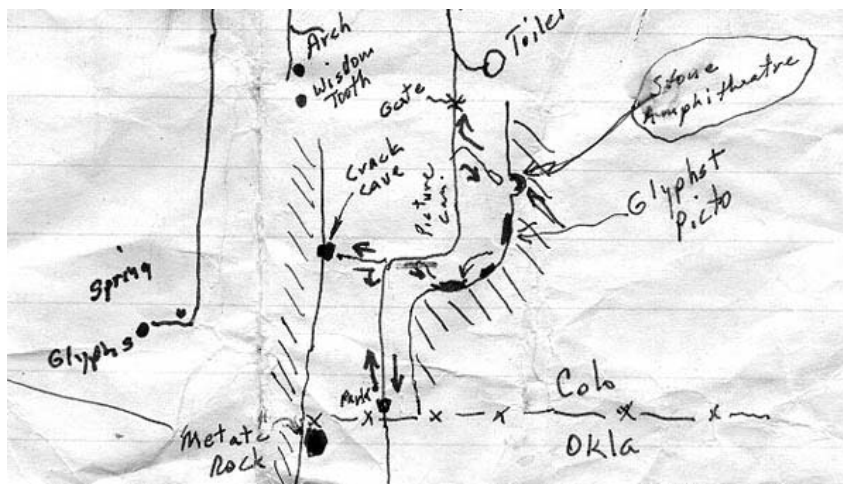 Arch
Wisdom
Tooth
Toilet
Gate
Stone
Amphitheatre
Crack
Cave
Picture
Can.
Glyphs +
Picto
Spring
Glyphs
Park
Metate
Rock
Colo
Okla